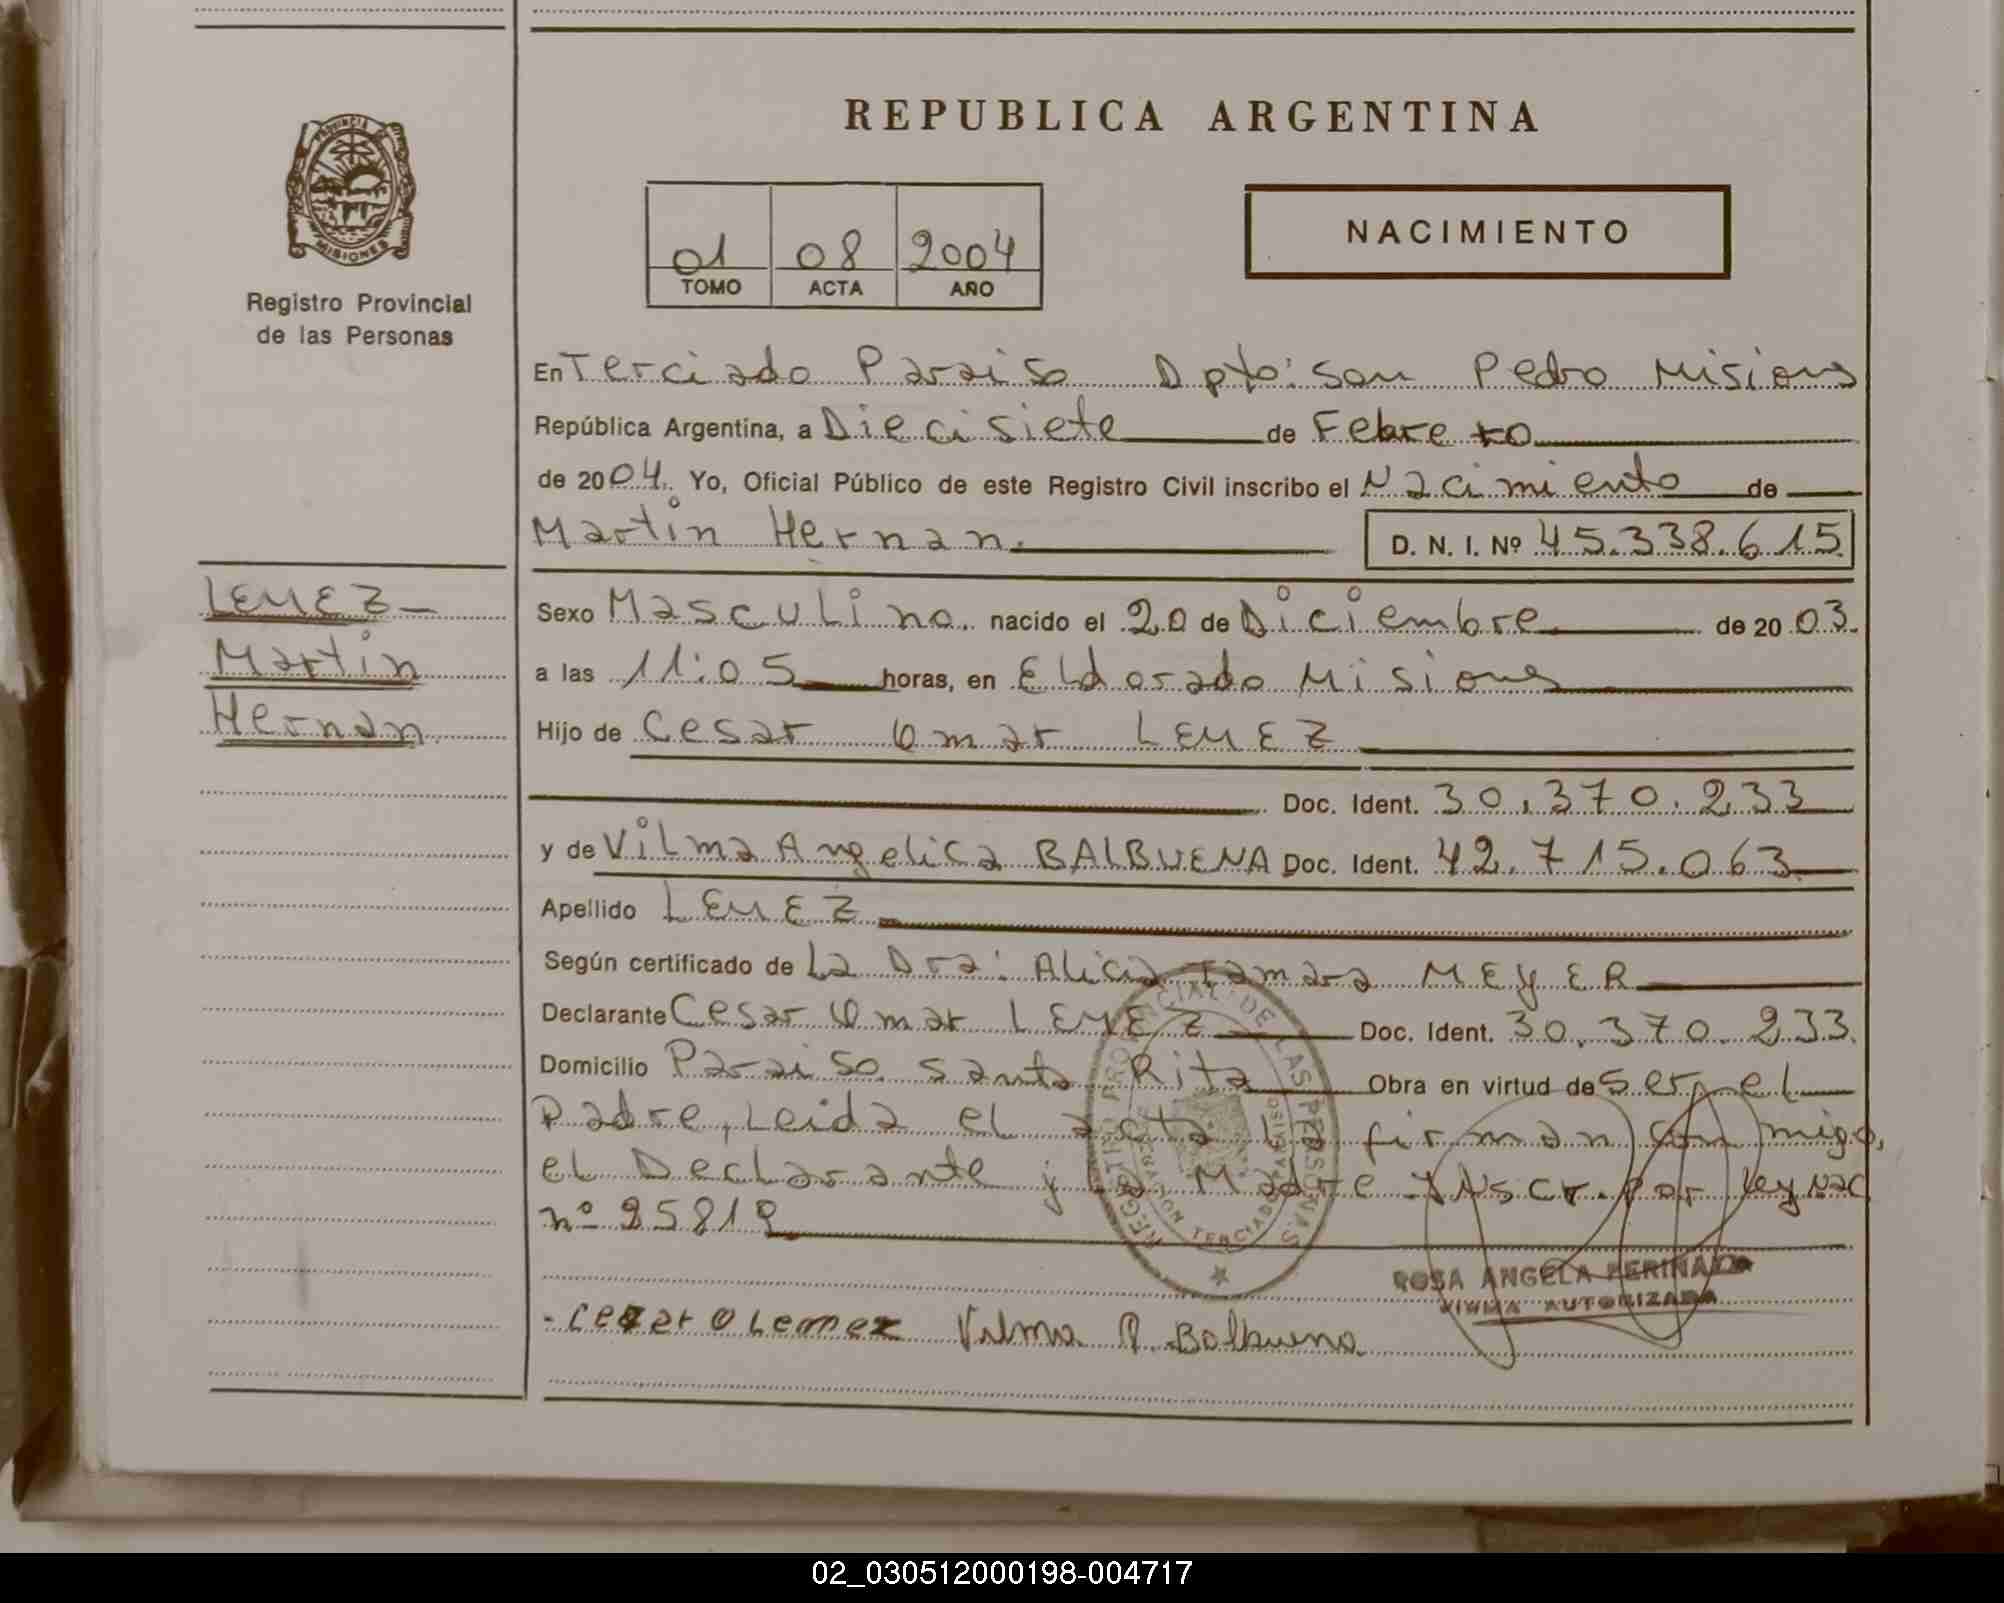 REPUBLICA ARGENTINA
PROVINCIA DE
MISIONES
Registro Provincial
de las Personas
01 08 2004
TOMO ACTA AÑO
NACIMIENTO
En Terciado Paraiso Dpto: San Pedro Misiones
República Argentina, a Diecisiete de Febrero
de 2004. Yo, Oficial Público de este Registro Civil inscribo el Nacimiento de
Martin Hernan. D. N. I. Nº 45.338.615
LEMEZ
Martin
Hernan
Sexo Masculino. nacido el 20 de Diciembre de 2003.
a las 11:05 horas, en Eldorado Misiones
Hijo de Cesar Omar LEMEZ
Doc. Ident. 30.370.233
y de Vilma Angelica BALBUENA Doc. Ident. 42.715.063
Apellido LEMEZ
Según certificado de La Dra: Alicia Tamara MEYER
Declarante Cesar Omar LEMEZ Doc. Ident. 30.370.233.
Domicilio Paraiso Santa Rita Obra en virtud de ser el
Padre, Leida el acta La firman conmigo,
el Declarante y La Madre Inscr. Por Ley Nac
nº 25819
REGISTRO PROVINCIAL DE LAS PERSONAS
DELEGACION TERCIADO PARAISO
ROSA ANGELA
FIRMA AUTORIZADA
Cezar O Lemez Vilma A. Balbuena
02_030512000198-004717